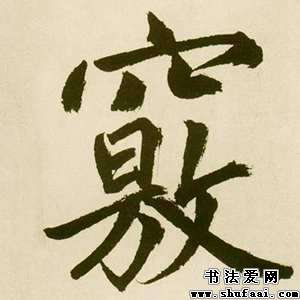 竅
书法爱网
www.shufaai.com